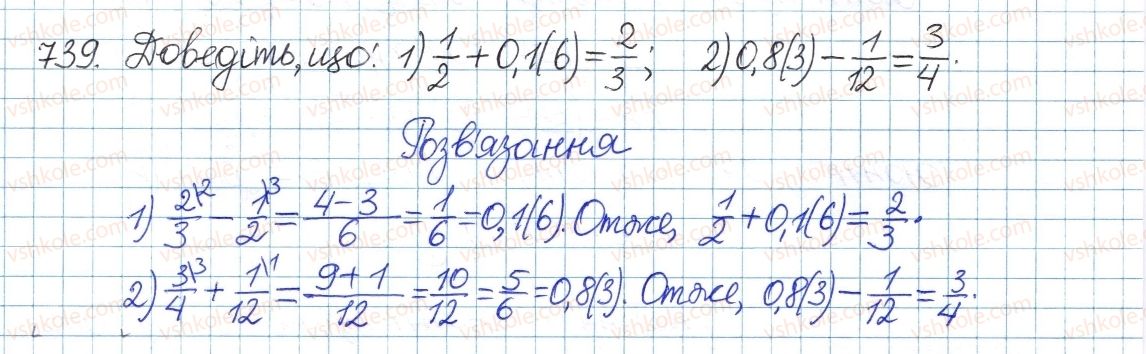 739. Доведіть, що: 1) 1/2 + 0,1(6) = 2/3; 2) 0,8(3) − 1/12 = 3/4.
Розв'язання
1) 2\2/3 − 1\3/2 = 4−3/6 = 1/6 = 0,1(6). Отже, 1/2 + 0,1(6) = 2/3.
2) 3\3/4 + 1\1/12 = 9+1/12 = 10/12 = 5/6 = 0,8(3). Отже, 0,8(3) − 1/12 = 3/4.
vshkole.com